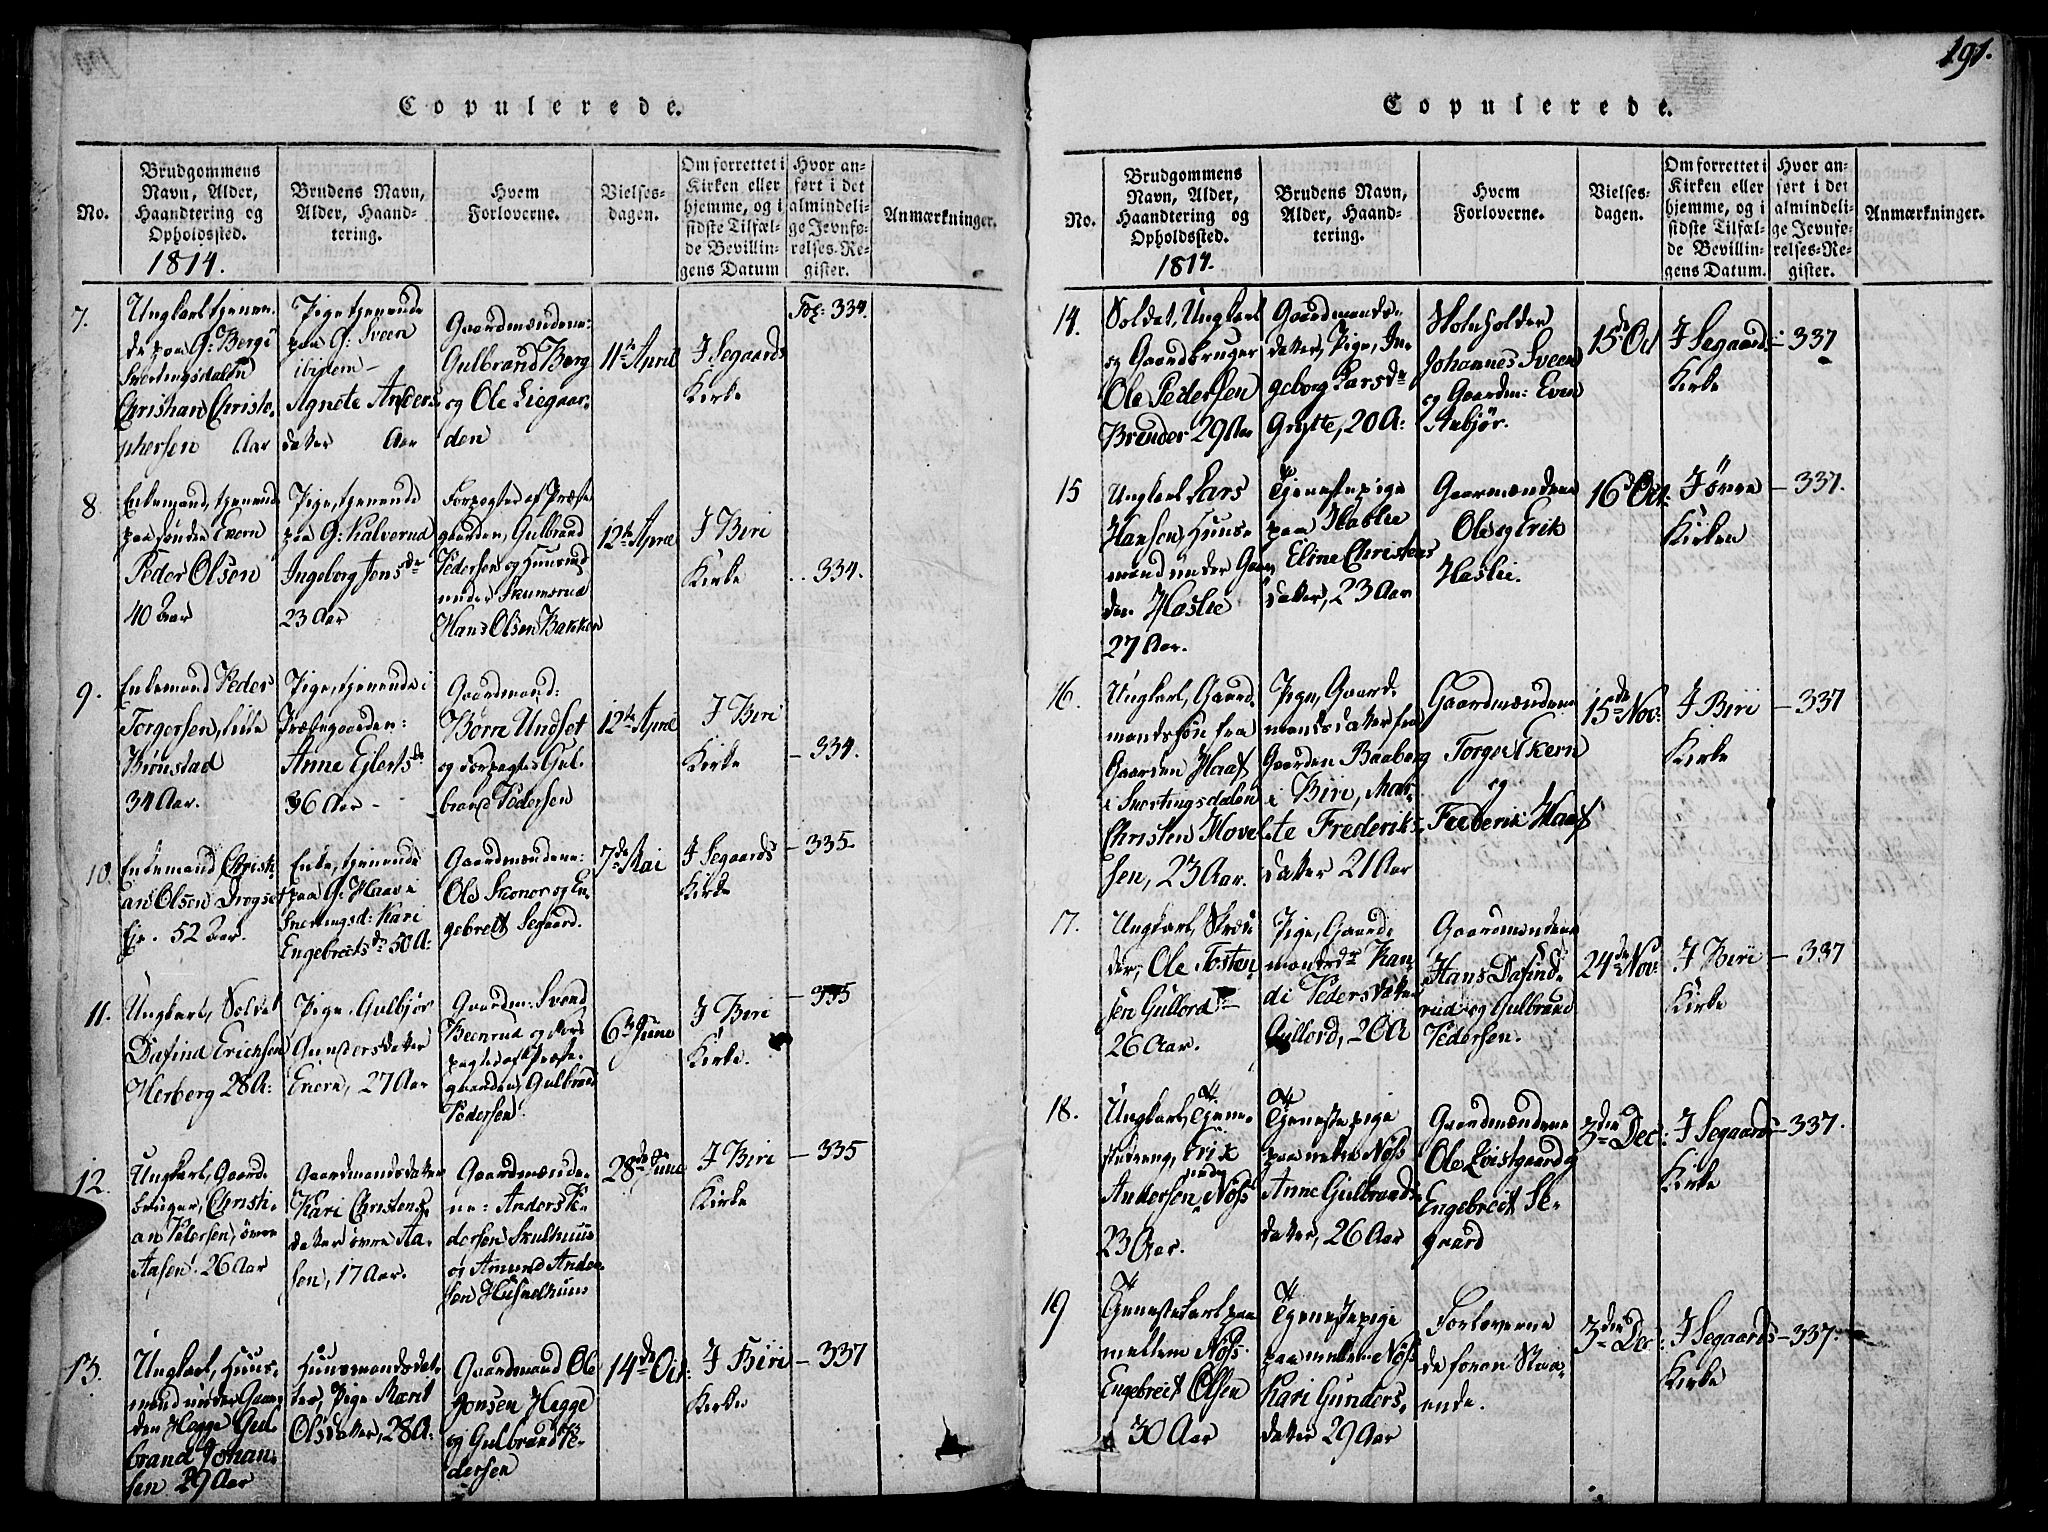 Copulerede.
No.
Brudgommens Navn, Alder, Haandtering og Opholdssted.
1814.
Brudens Navn, Alder, Haandtering.
Hvem Forloverne.
Vielsesdagen.
Om forrettet i Kirken eller hjemme, og i sidste Tilfælde Bevillingens Datum
Hvor anført i det almindelige Jevnførelses-Register.
Anmærkninger.
7.
Ungkarl tjenende paa G: Berg i
Snertingsdalen
Christian Christophersen Aar
Pige tjenende
paa G: Sveen
ibidem –
Agnete Anders
datter Aar
Gaardmændene:
Gulbrand Berg
og Ole Liegaar-
den
11te April
I Segaards
Kirke
Fol: 334.
8.
Enkemand, tjenende
paa søndre Exern
Peder Olsen
40 Aar
Pige, tjenende
paa G: Kalverud
Ingeborg Jensdr
23 Aar
Forpagter af Præste
gaarden, Gulbrand
Pedersen og Huusmd
under Skumsrud
Hans Olsen Bakken
12te April
I Biri
Kirke
334.
9.
Enkemand Peder
Torgersen, lille
Biønstad
34 Aar.
Pige, tjenende i
Præstegaarden:
Anne Ejlertsdr
36 Aar –
Gaardmænd:
Børre Undset
og Forpagter Gul-
brand Pedersen
12te April
I Biri
Kirke
– 334.
10.
Enkemand Christi-
an Olsen Drogset
Eje. 52 Aar.
Enke, tjenende
paa G: Haave i
Snertingsd: Kari
Engebretsdr 50 A:
Gaardmændene:
Ole Skonor og En-
gebrett Segaard.
7de Mai
I Segaards
Kirke
– 335
11.
Ungkarl, Soldat
Dafind Erichsen
Herberg 28 A:
Pige, Gulbjør
Gundersdatter
Enern, 27 Aar
Gaardm: Svend
Beenrud og For-
pagter af Præste-
gaarden, Gulbrand
Pedersen
6te Iune
I Biri
Kirke.
– 335
12.
Ungkarl, Gaard-
bruger, Christi-
an Petersen, øvre
Aasen. 26 Aar
Gaardmandsdatter
Kari Christens-
datter øvre Aa-
sen, 17 Aar.
Gaardmænde-
ne: Anders Pe-
dersen Skulhuus
og Amund Ander-
sen
28de Iune
I Biri
Kirke
– 335
13.
Ungkarl, Huus-
mand under Gaar-
den Hegge Gul-
brand Johan-
sen 29 Aar
Huusmandsdat-
ter, Pige Marit
Olsdatter, 28 A:
Gaardmand Ole
Jonsen Hegge
og Gulbrand Pe-
dersen
14de Oct:
I Biri
Kirke
– 337
191.
Copulerede.
No.
Brudgommens Navn, Alder, Haandtering og Opholdssted.
1814.
Brudens Navn, Alder, Haandtering.
Hvem Forloverne.
Vielsesdagen.
Om forrettet i Kirken eller hjemme, og i sidste Tilfælde Bevillingens Datum.
Hvor anført i det almindelige Jevnførelses-Register.
Anmærkninger.
14.
Soldat, Ungkarl
og Gaardbruger
Ole Pedersen
Brender 29 Aar
Gaardmands-
datter, Pige, In-
geborg Larsdr
Grytte, 20 A:
Skoleholder
Johannes Sveen
og Gaardm: Even
Aabjør.
15de Oct
I Segaards
Kirke
337
15
Ungkarl Lars
Hansen, Huus-
mand under Gaar-
den Haslie
27 Aar.
Tjenestepige
paa Haslie
Eline Christens
datter, 23 Aar
Gaarmændene
Ole og Erik
Haslie.
16de Oct.
I øvre
Kirken
– 337.
16.
Ungkarl, Gaard-
mandssøn fra
Gaarden Haaf
i Snertingsdalen
Christen Hovel-
sen, 23 Aar.
Pige, Gaard-
mandsdatter fra
Gaarden Baaberg
i Biri, Mar-
te Frederiks-
datter 21 Aar
Gaardmændene
Torger Ekern
og
Frederik Haaf
15de Nov:
I Biri
Kirke
– 337
17.
Ungkarl, Skræd-
der, Ole Tosten-
sen Gullord
26 Aar.
Pige, Gaard-
mandsdr Kan-
di Pedersdatter
Gullord, 20 A
Gaardmændene
Hans Dafind-
rud og Gulbrand
Pedersen.
24de Nov:
I Biri
Kirke
– 337
18.
Ungkarl, Tjene-
stedreng, Erik
Andersen nedre Nøss
23 Aar.
Tjenestepige
paa nedre Nøss
Anne Gulbrands
datter, 26 Aar
Gaardmændene
Ole Qvistgaard og
Engebret Se-
gaard
3die Dec:
I Segaards
Kirke
– 337.
19
Tjenestekarl paa
mellem Nøss
Engebret Olsen
30 Aar
Tjenestepige
paa mellem Nøss
Kari Gunders-
datter 29 Aar
Forloverne
de foran Staa-
ende.
3die Dec:
I Segaards
Kirke
– 337.